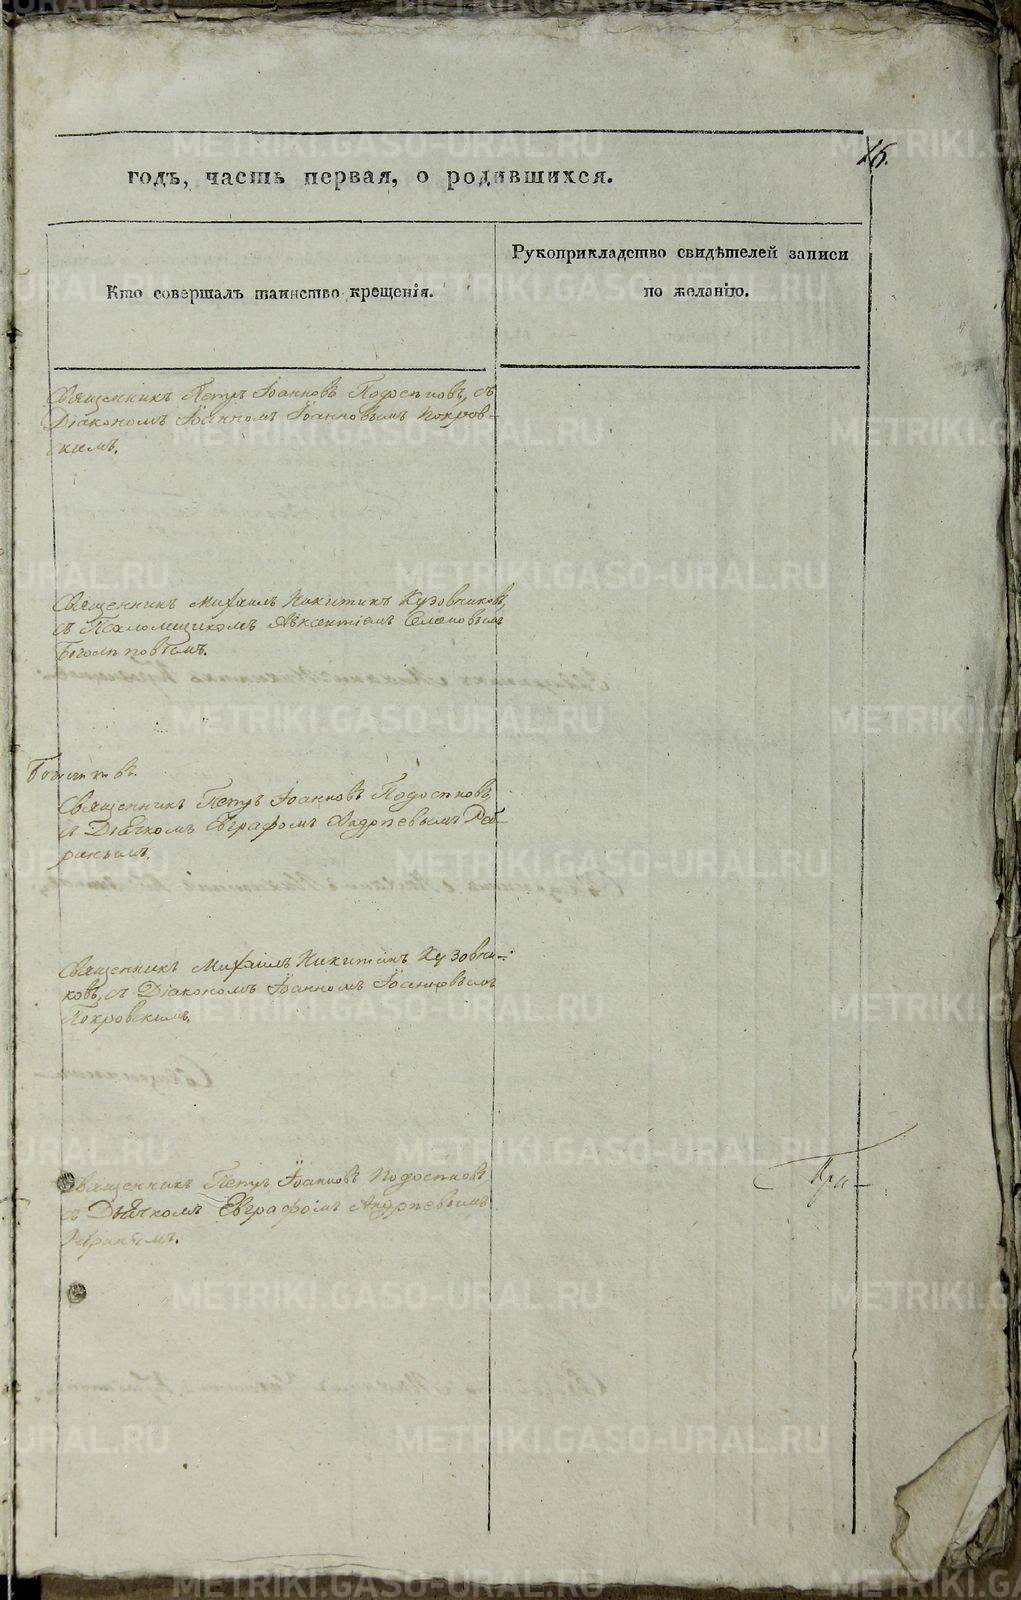 16.
годъ, часть первая, о родившихся.
Кто совершалъ таинство крещенія.
Рукоприкладство свидѣтелей записи
по желанію.
Священникъ Петръ Іоанновъ съ
Діакономъ Іоанномъ Іоанновымъ Покров-
скимъ.
Священникъ Михаилъ Никитинъ Кузовниковъ,
съ Псаломщикомъ
Священникъ Петръ Іоанновъ
съ Дьячкомъ Евграфомъ Андреевымъ
Священникъ Михаилъ Никитинъ Кузовни-
ковъ, съ Діакономъ Іоанномъ Іоанновымъ
Покровскимъ.
Священникъ Петръ Іоанновъ
съ Дьячкомъ Евграфомъ Андреевымъ
METRIKI.GASO-URAL.RU